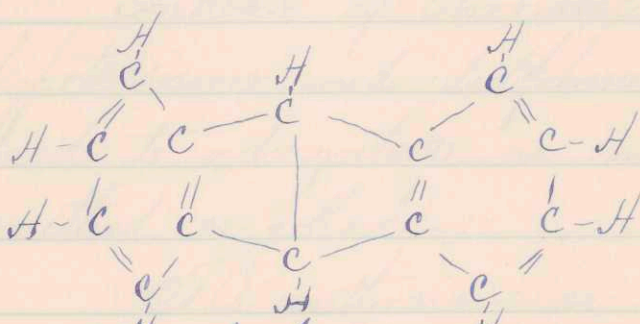 H H H
C C C
H-C C C C-H
H-C C C C-H
C C C
H